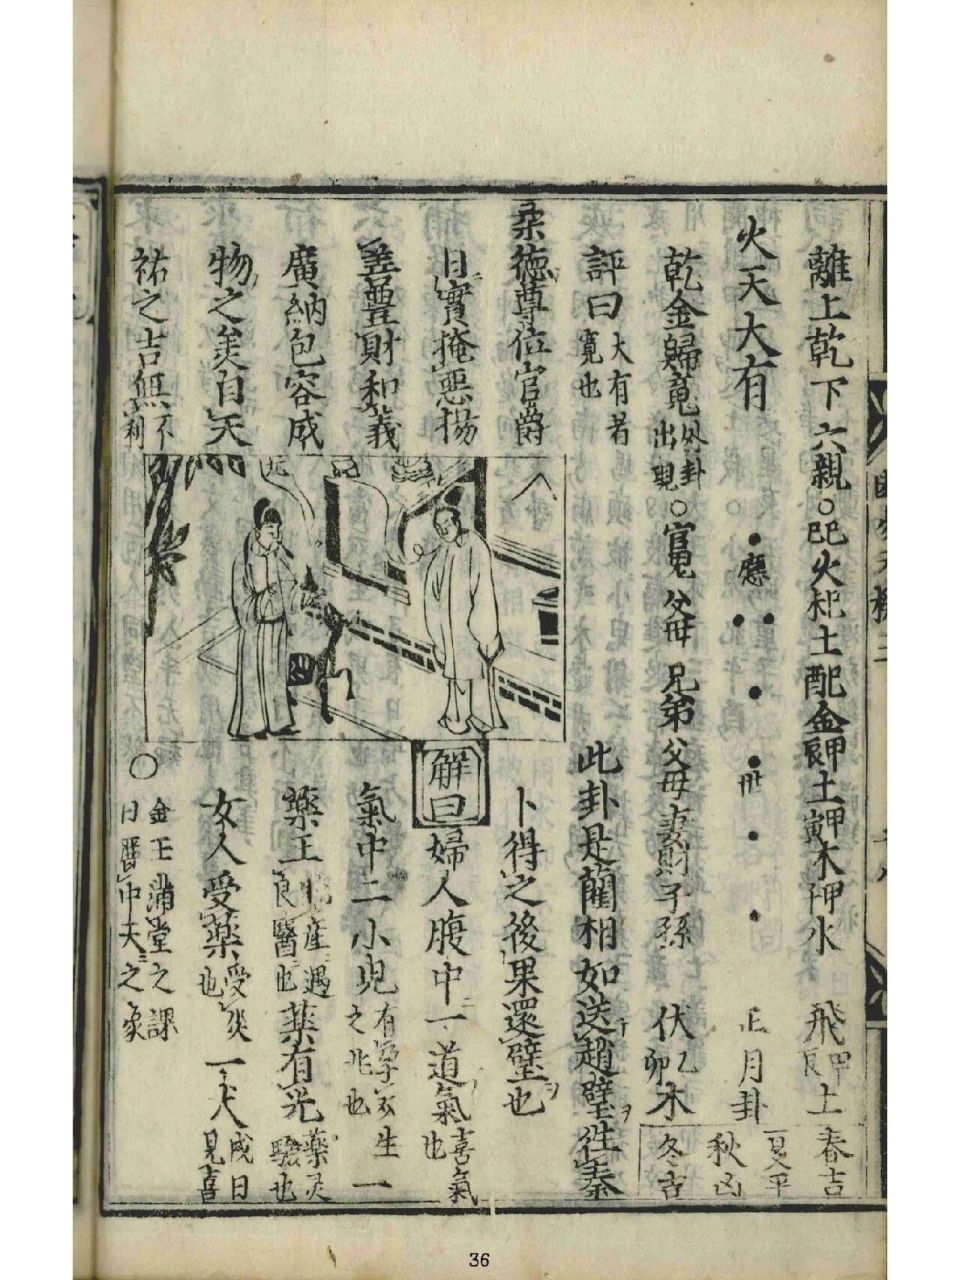 離上乾下六親○㔾巳火未土酉金辰甲土寅甲木子甲水 飛甲辰土 春吉
火天大有 應 世 正月卦 夏平 秋凶
乾金歸䰟外卦出現○官鬼 父母 兄弟 父母 妻財 子孫 伏乙卯木 冬吉
評曰大有者寬也
此卦是藺相如送趙璧往秦
柔德尊位官爵
卜得之後果還璧也
日實掩惡揚
解曰婦人腹中一道氣喜氣也
善豊財和義
氣中二小兒有孕双生之兆也 一
廣納包容成
藥王臨產遇良醫也藥有光藥灵驗也
物之美自天
女人受藥受災也一犬戌日見喜
祐之吉無不利
○金玉滿堂之課日麗中天之象
36